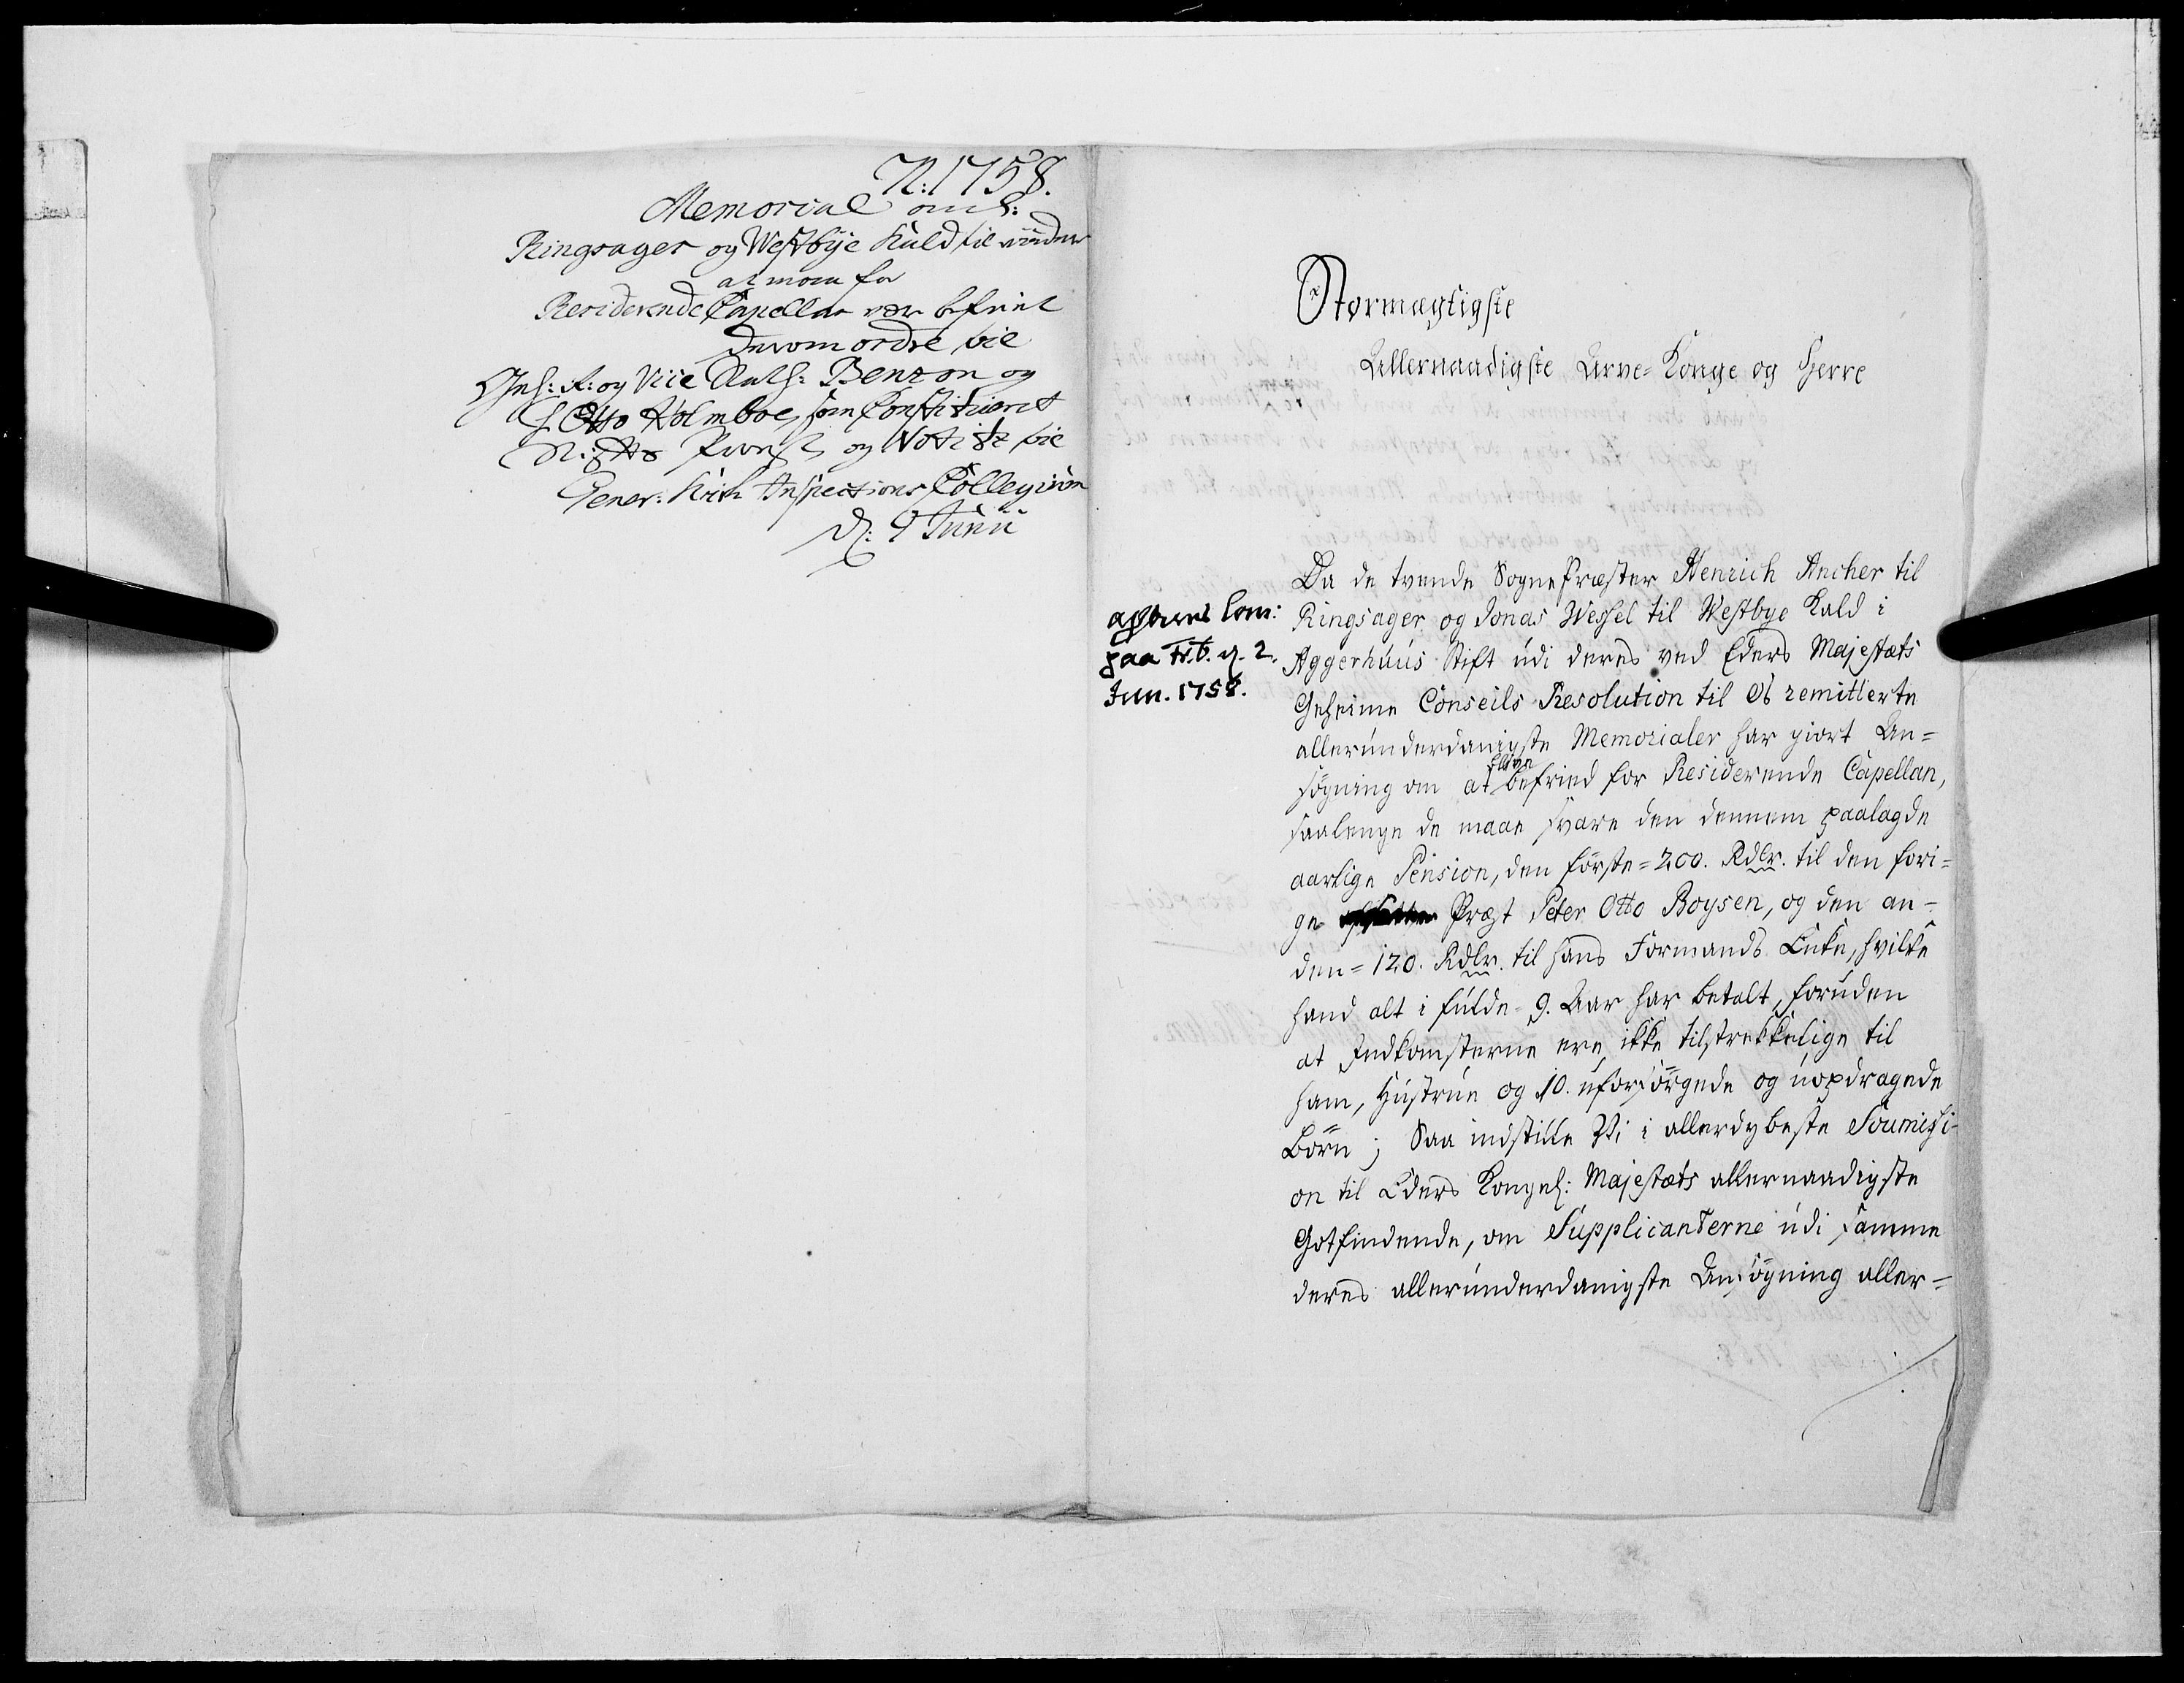 N: 1758.
Memorial anl:
Ringsager og Westbye Kald til
at maae for
Residerende Capellan være befriet
Derom ordre til
og Vice Stath: Benzon og
Otto Holmboe, som Constitueret
og Notitz til
Gener: Kirk Inspections Collegium
d: 9 Junii
Stormægtigste
Allernaadigste Arve-Konge og Herre
Da de tvende Sogne Præster Henrich Ancher til
Ringsager og Jonas Wessel til Westbye Kald i
Aggerhuus Stift udi deres ved Eders Majestæts
Geheime Conseils Resolution til Os remitterte
allerunderdanigste Memorialer har giort An-
blive
søgning om at befried for Residerende Capellan,
saalenge de maae svare den dennem paalagde
aarlige Pension, den første = 200. Rdlr. til den fori-
ge Præst Peter Otto Boysen, og den an-
den = 120. Rdlr. til hans Formands Enke, hvilke
hand alt i fulde 9. Aar har betalt, foruden
at Indkomsterne ere ikke tilstrekkelige til
ham, Hustrue og 10. uforsørgede og uopdragede
Børn; Saa indstille Vi i allerdybeste Soumissi-
on til Eders Kongel: Majestæts allernaadigste
Gotfindende, om Supplicanterne udi samme
deres allerunderdanigste Ansøgning aller-
paa Fr.b. d. 2.
Jun. 1758.